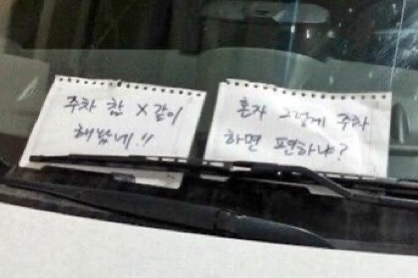 주차 참 X같이
해놨네!!
혼자 그렇게 주차
하면 편하냐?